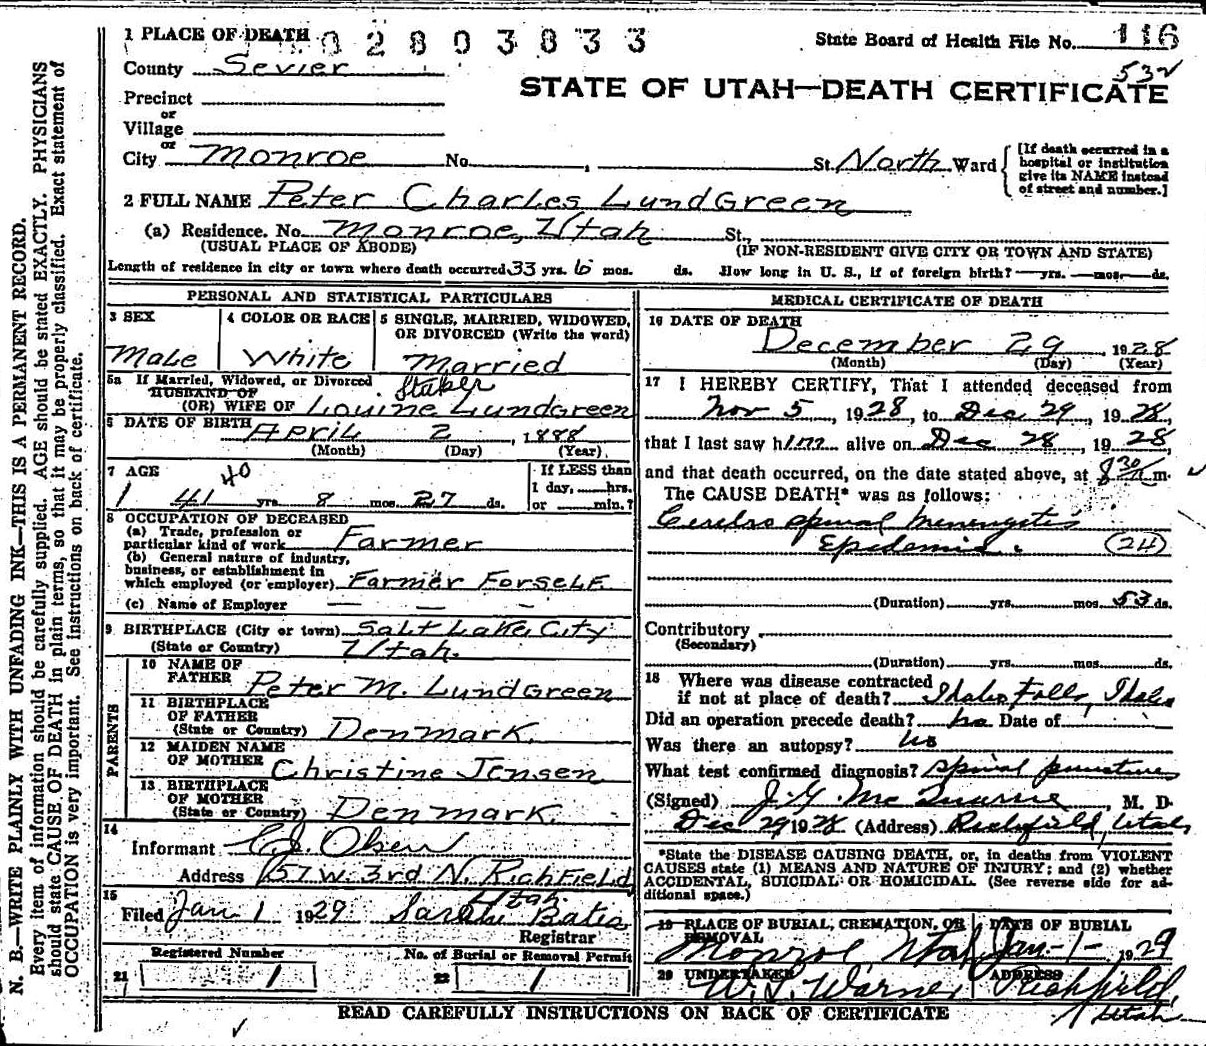 N. B.—WRITE PLAINLY WITH UNFADING INK—THIS IS A PERMANENT RECORD.
Every item of information should be carefully supplied. AGE should be stated EXACTLY. PHYSICIANS
should state CAUSE OF DEATH in plain terms, so that it may be properly classified. Exact statement of
OCCUPATION is very important. See instructions on back of certificate.
1 PLACE OF DEATH 02803833
State Board of Health File No. 116
532
County Sevier
STATE OF UTAH—DEATH CERTIFICATE
Precinct
or
Village
or
City Monroe No. , St. North Ward
[If death occurred in a
hospital or institution
give its NAME instead
of street and number.]
2 FULL NAME Peter Charles LundGreen
(a) Residence. No. Monroe, Utah St.,
(USUAL PLACE OF ABODE) (IF NON-RESIDENT GIVE CITY OR TOWN AND STATE)
Length of residence in city or town where death occurred 33 yrs. 6 mos. ds. How long in U. S., if of foreign birth? — yrs. — mos. — ds.
PERSONAL AND STATISTICAL PARTICULARS
3 SEX
Male
4 COLOR OR RACE
White
5 SINGLE, MARRIED, WIDOWED,
OR DIVORCED (Write the word)
Married
5a If Married, Widowed, or Divorced
HUSBAND OF
(OR) WIFE OF Louine Staker LundGreen
6 DATE OF BIRTH April 2, 1888
(Month) (Day) (Year)
7 AGE 40
41 yrs. 8 mos. 27 ds.
If LESS than
1 day, hrs.
or min.?
8 OCCUPATION OF DECEASED
(a) Trade, profession or
particular kind of work Farmer
(b) General nature of industry,
business, or establishment in
which employed (or employer) Farmer ForselF
(c) Name of Employer — — —
9 BIRTHPLACE (City or town) Salt Lake City
(State or Country) Utah.
PARENTS
10 NAME OF
FATHER Peter M. LundGreen
11 BIRTHPLACE
OF FATHER
(State or Country) Denmark.
12 MAIDEN NAME
OF MOTHER Christine Jensen
13 BIRTHPLACE
OF MOTHER
(State or Country) Denmark.
14
Informant C. J. Olsen
Address 157 W. 3rd N. RichField
Utah.
15
Filed Jan 1 1929
Registrar
Registered Number
21 1
No. of Burial or Removal Permit
22 1
MEDICAL CERTIFICATE OF DEATH
16 DATE OF DEATH
December 29 1928
(Month) (Day) (Year)
17 I HEREBY CERTIFY, That I attended deceased from
Nov 5, 1928, to Dec 29, 1928,
that I last saw him alive on Dec 28, 1928,
and that death occurred, on the date stated above, at 8 30 m.
The CAUSE DEATH* was as follows:
Cerebro spinal meningitis
Epidemic. (24)
(Duration) yrs. mos. 53 ds.
Contributory
(Secondary)
(Duration) yrs. mos. ds.
18 Where was disease contracted
if not at place of death? Idaho Falls, Idaho
Did an operation precede death? no Date of
Was there an autopsy? no
What test confirmed diagnosis? Spinal puncture
(Signed) J. G. McQuarrie, M. D.
Dec 29 1928 (Address) Richfield, Utah
*State the DISEASE CAUSING DEATH, or, in deaths from VIOLENT
CAUSES state (1) MEANS AND NATURE OF INJURY; and (2) whether
ACCIDENTAL, SUICIDAL OR HOMICIDAL. (See reverse side for ad-
ditional space.)
19 PLACE OF BURIAL, CREMATION, OR
REMOVAL
Monroe Utah
DATE OF BURIAL
Jan-1- 1929
20 UNDERTAKER
W. L. Warner
ADDRESS
Richfield,
Utah
READ CAREFULLY INSTRUCTIONS ON BACK OF CERTIFICATE